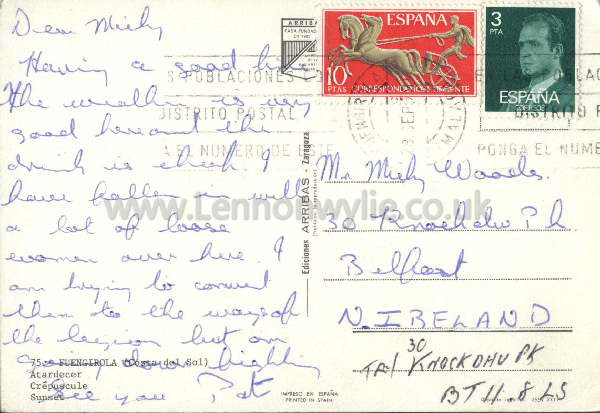 Dear Micky
Having a good time
The weather is very
good here and the
drink is cheap. I
have fallen in with
a lot of loose
women over here. I
am trying to convert
them to the ways of
the legion but am
going down fighting
See you Pat
75.- FUENGIROLA (Costa del Sol)
Atardecer
Crépuscule
Sunset
ARRIBAS
CASA FUNDADA
EN 1905
Ediciones ARRIBAS - Zaragoza
IMPRESO EN ESPAÑA
PRINTED IN SPAIN
ESPAÑA
10
PTAS
CORRESPONDENCIA URGENTE
3
PTA
ESPAÑA
CORREOS
S POBLACIONES
DISTRITO POSTAL
A EL NUMERO DE
LAS POBLAC
DISTRITO P
PONGA EL NUME
MALAGA
www.Lennonwylie.co.uk
Mr Micky Woods.
30 Knockdhu Pk
Belfast
N. IRELAND
30
TRY KNOCKDHU PK
BT11.8LS